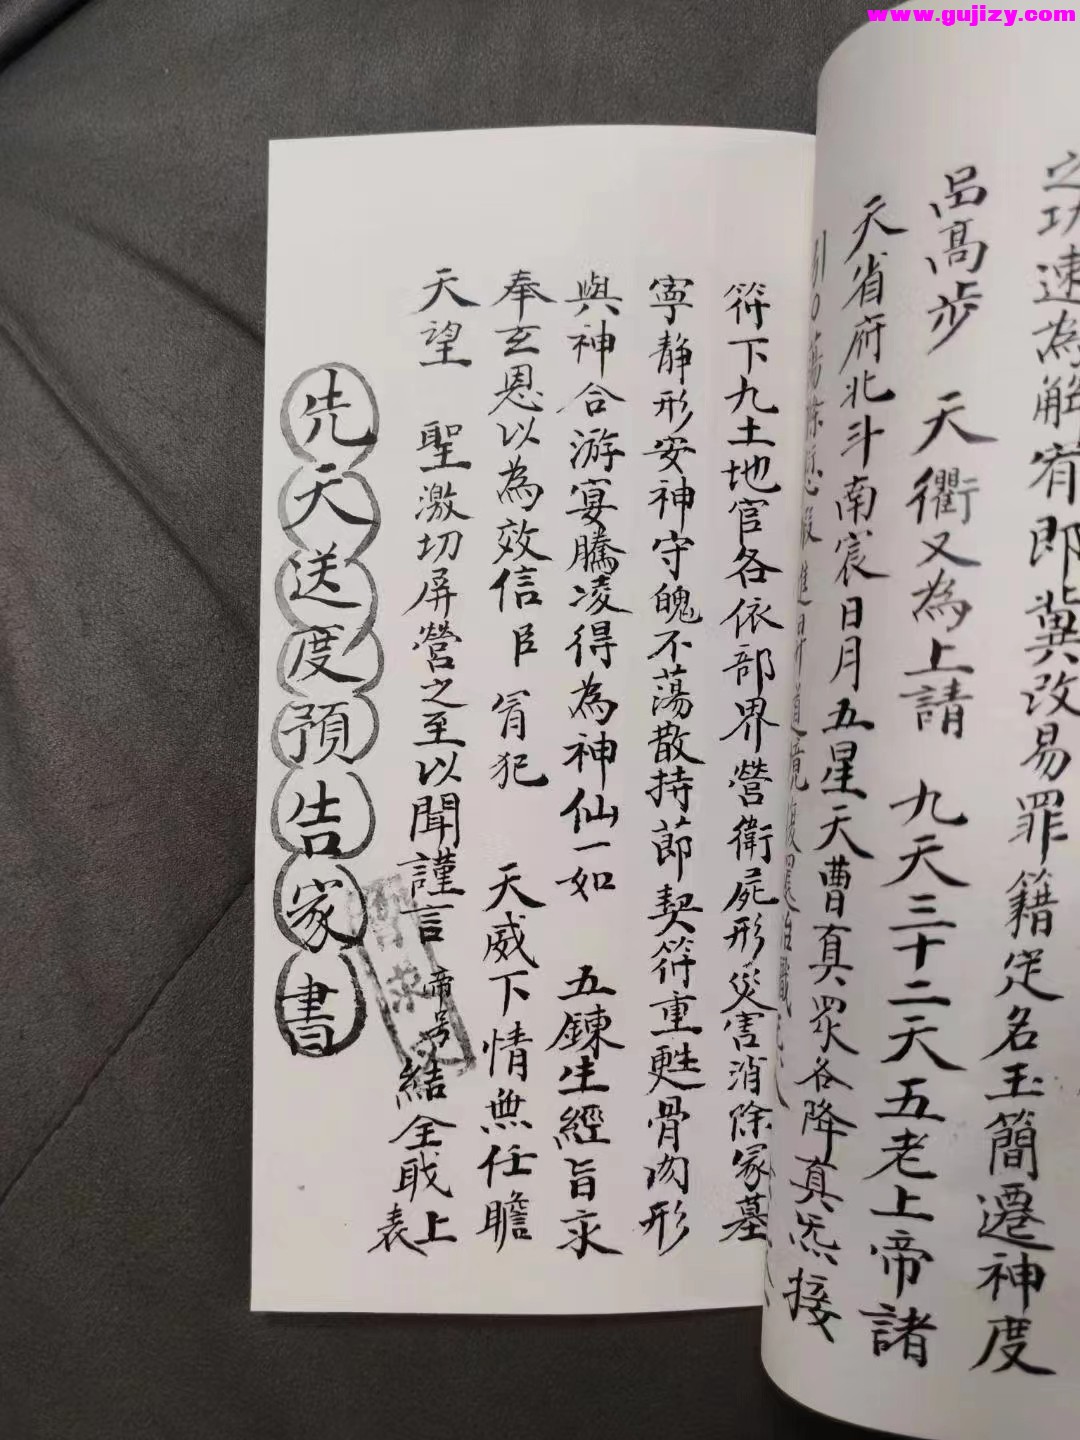 www.gujizy.com
之功速為解宥即冀改易罪籍定名玉簡遷神度
品高步 天衢又為上請 九天三十二天五老上帝諸
天省府北斗南宸日月五星天曹真眾各降真炁接
符下九土地官各依部界營衛屍形災害消除冢墓
寧靜形安神守魄不蕩散持節契符重甦骨肉形
與神合游宴騰凌得為神仙一如 五鍊生經旨求
奉玄恩以為效信臣 肙犯 天威下情無任瞻
天望 聖激切屏營之至以聞謹言 帝号 結全戢上
表
先天送度預告家書